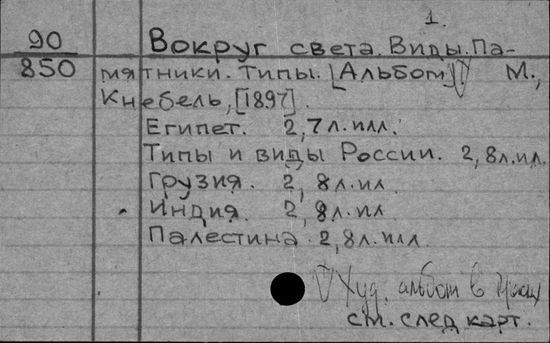 1.
90 Вокруг света. Виды. Па-
850 мятники. Типы. [Альбом] М.,
Кнебель, [1897].
Египет. 2,7 л. илл.
Типы и виды России. 2,8л.ил.
Грузия. 2, 8л. ил.
Индия. 2, 8л. ил.
Палестина. 2,8л. илл.
Худ. альбом в
см. след карт.